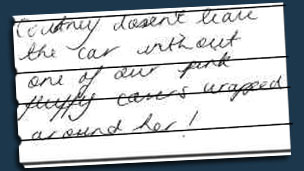 Courtney dosen't leave
the car without
one of our pink
fluffy covers wrapped
around her!